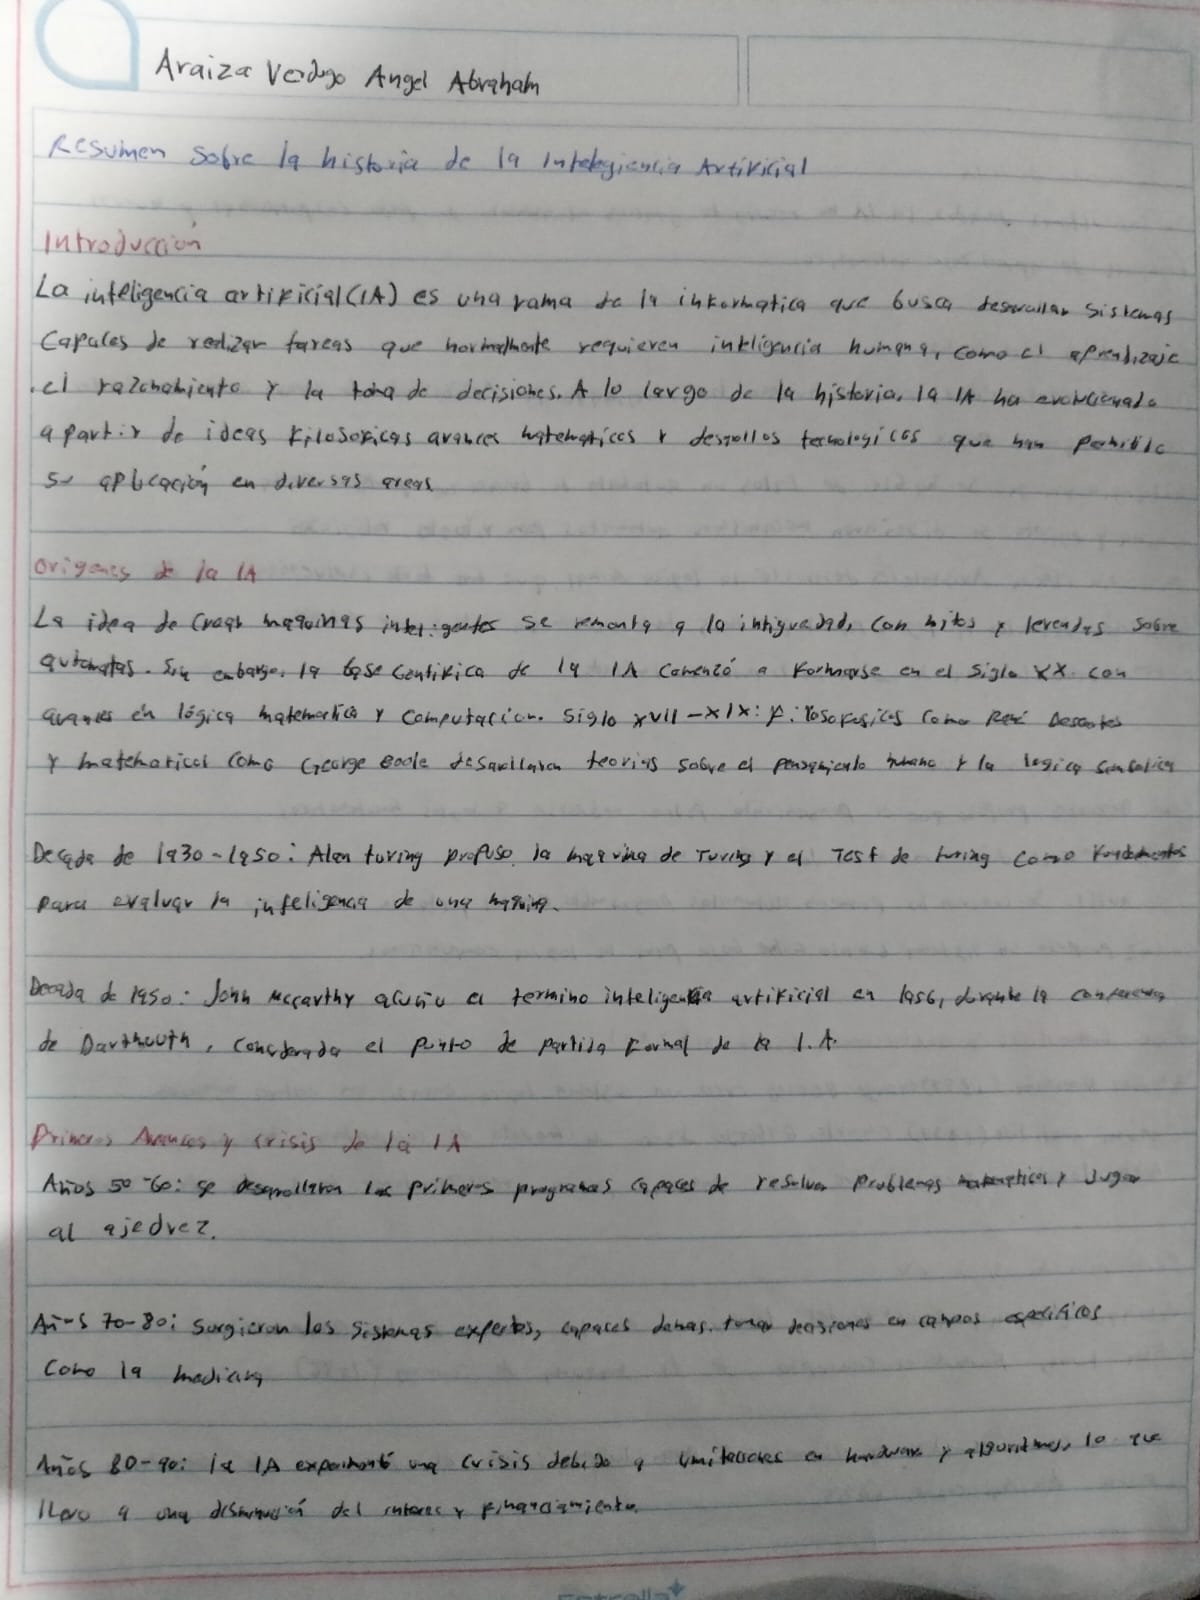 Araiza Verdugo Angel Abraham
Resumen sobre la historia de la Intelegiencia Artificial
Introducción
La inteligencia artificial (IA) es una rama de la informatica que busca desarrollar sistemas
capaces de realizar tareas que normalmente requieren inteligencia humana, como el aprendizaje
el razonamiento y la toma de decisiones. A lo largo de la historia, la IA ha evolucionado
a partir de ideas filosoficas avances matematicos y desarrollos tecnologicos que han permitido
su aplicación en diversas areas
Origenes de la IA
La idea de crear maquinas inteligentes se remonta a la intiguedad, con mitos y leyendas sobre
automatas. Sin embargo, la base cientifica de la IA comenzó a formarse en el siglo XX con
avances en lógica matematica y computacion. Siglo XVII - XIX: como René Descartes
y matematicos como George Boole desarrollaron teorias sobre el pensamiento humano y la logica simbolica
Decada de 1930-1950: Alan turing propuso la maquina de Turing y el Test de turing como fundamentos
para evaluar la inteligencia de una maquina.
Decada de 1950: John Mccarthy acuño el termino inteligencia artificial en 1956, durante la conferencia
de Darthmouth, considerada el punto de partida formal de la I.A.
Primeros Avances y crisis de la IA
Años 50-60: se desarrollaron los primeros programas capaces de resolver problemas matematicos y jugar
al ajedrez.
Años 70-80: surgieron los sistemas expertos, capaces tomar decisiones en campos especificos
como la medicina
Años 80-90: la IA experimentó una crisis debido a limitaciones en hardware y algoritmos, lo que
llevo a una disminución del interes y financiamiento.